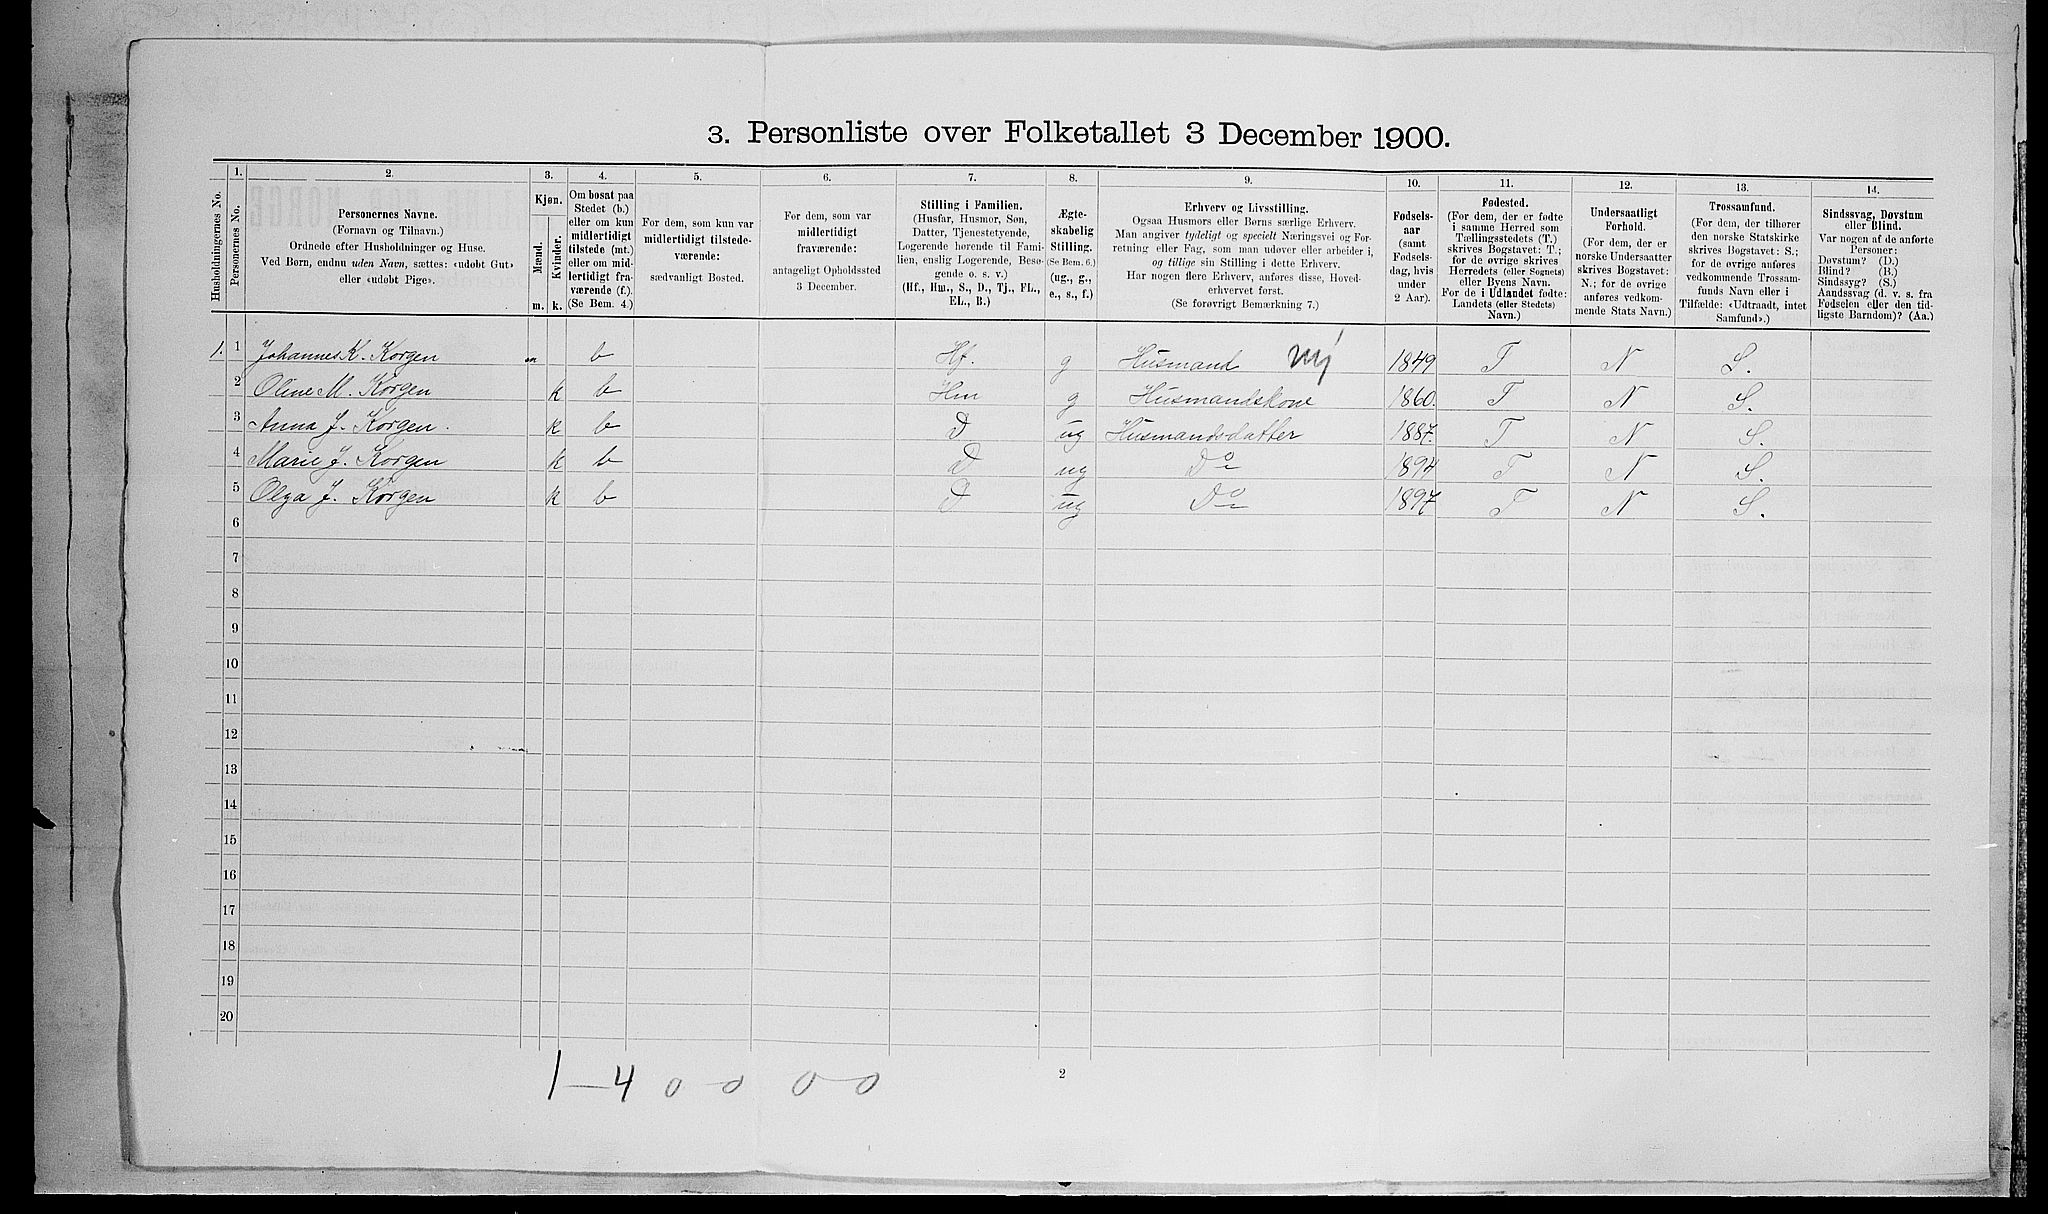 3. Personliste over Folketallet 3 December 1900.
Husholdningernes No.
1.
Personernes No.
2.
Personernes Navne.
(Fornavn og Tilnavn.)
Ordnede efter Husholdninger og Huse.
Ved Børn, endnu uden Navn, sættes: «udøbt Gut»
eller «udøbt Pige».
3.
Kjøn.
Mænd.
Kvinder.
m. k.
4.
Om bosat paa
Stedet (b.)
eller om kun
midlertidigt
tilstede (mt.)
eller om mid-
lertidigt fra-
værende (f.).
(Se Bem. 4.)
5.
For dem, som kun var
midlertidigt tilstede-
værende:
sædvanligt Bosted.
6.
For dem, som var
midlertidigt
fraværende:
antageligt Opholdssted
3 December.
7.
Stilling i Familien.
(Husfar, Husmor, Søn,
Datter, Tjenestetyende,
Logerende hørende til Fami-
lien, enslig Logerende, Besø-
gende o. s. v.)
(Hf., Hm., S., D., Tj., FL.,
EL., B.)
8.
Ægte-
skabelig
Stilling.
(Se Bem. 6.)
(ug., g.,
e., s., f.)
9.
Erhverv og Livsstilling.
Ogsaa Husmors eller Børns særlige Erhverv.
Man angiver tydeligt og specielt Næringsvei og For-
retning eller Fag, som man udøver eller arbeider i,
og tillige sin Stilling i dette Erhverv.
Har nogen flere Erhverv, anføres disse, Hoved-
erhvervet først.
(Se forøvrigt Bemærkning 7.)
10.
Fødsels-
aar
(samt
Fødsels-
dag, hvis
under
2 Aar).
11.
Fødested.
(For dem, der er fødte
i samme Herred som
Tællingsstedets (T.)
skrives Bogstavet: T.;
for de øvrige skrives
Herredets (eller Sognets)
eller Byens Navn.
For de i Udlandet fødte:
Landets (eller Stedets)
Navn.)
12.
Undersaatligt
Forhold.
(For dem, der er
norske Undersaatter
skrives Bogstavet:
N.; for de øvrige
anføres vedkom-
mende Stats Navn.)
13.
Trossamfund.
(For dem, der tilhører
den norske Statskirke
skrives Bogstavet: S.;
for de øvrige anføres
vedkommende Trossam-
funds Navn eller i
Tilfælde: «Udtraadt, intet
Samfund».)
14.
Sindssvag, Døvstum
eller Blind.
Var nogen af de anførte
Personer:
Døvstum? (D.)
Blind? (B.)
Sindssyg? (S.)
Aandssvag (d. v. s. fra
Fødselen eller den tid-
ligste Barndom)? (Aa.)
1. 1 Johannes K. Korgen m b Hf. g Husmand mj 1849 T N S.
2 Oline M. Korgen k b Hm g Husmandskone 1860. T N S.
3 Anna J. Korgen. k b D ug Husmandsdatter 1887. T N S.
4 Marie J. Korgen k b D ug Do 1894 T N S.
5 Olga J. Korgen k b D ug Do 1897 T N S.
6
7
8
9
10
11
12
13
14
15
16
17
18
19
20
1 – 4 0 – 0 0 – 0
2